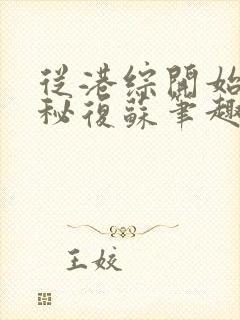 從港綜開始
秘復蘇筆趣
王姣